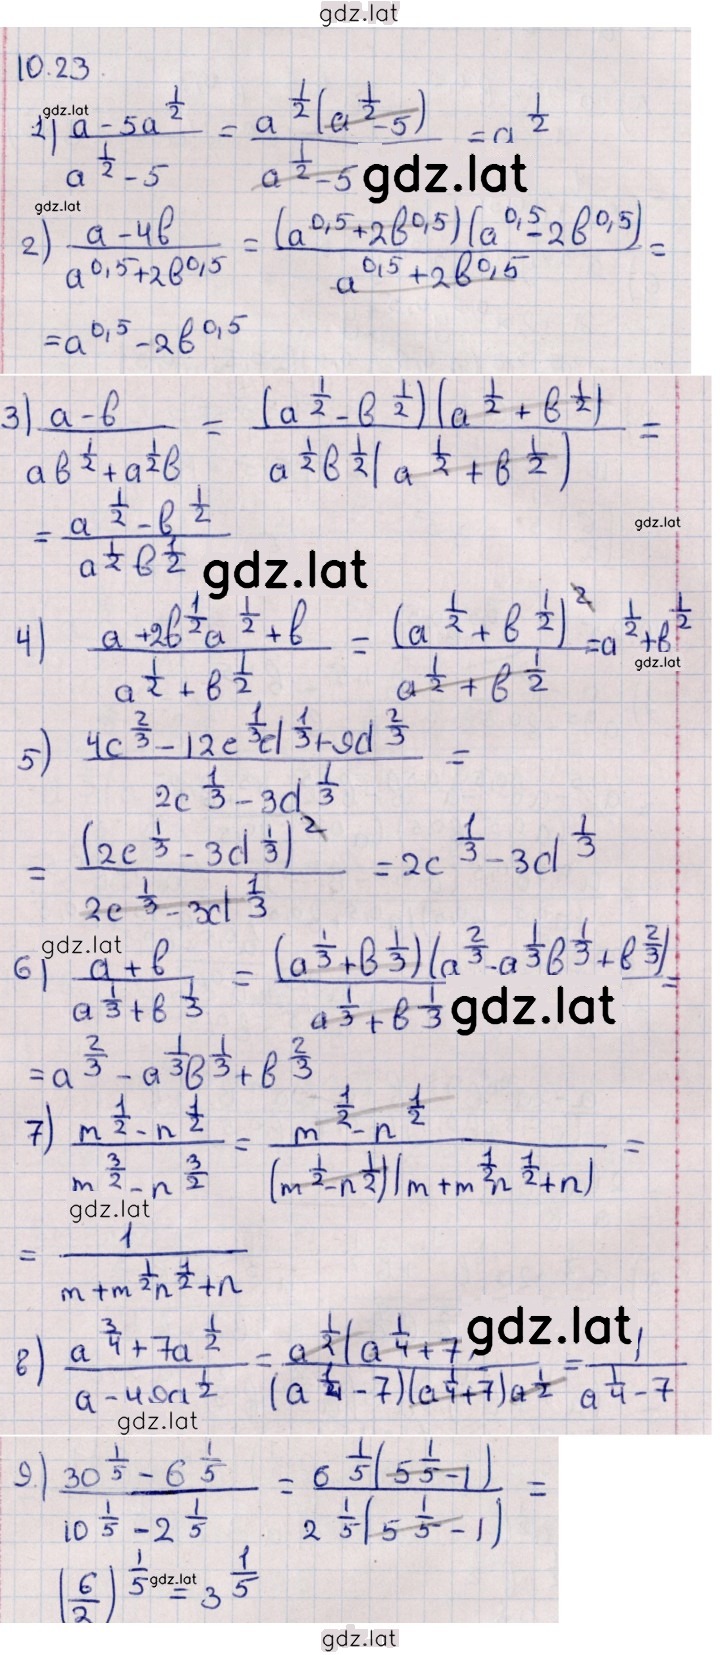 gdz.lat
10.23
gdz.lat
1) (a - 5a^(1/2))/(a^(1/2) - 5) = (a^(1/2)(a^(1/2) - 5))/(a^(1/2) - 5) = a^(1/2)
gdz.lat
gdz.lat
2) (a - 4b)/(a^0,5 + 2b^0,5) = ((a^0,5 + 2b^0,5)(a^0,5 - 2b^0,5))/(a^0,5 + 2b^0,5) =
= a^0,5 - 2b^0,5
3) (a - b)/(ab^(1/2) + a^(1/2)b) = ((a^(1/2) - b^(1/2))(a^(1/2) + b^(1/2)))/(a^(1/2)b^(1/2)(a^(1/2) + b^(1/2))) =
= (a^(1/2) - b^(1/2))/(a^(1/2)b^(1/2))
gdz.lat
gdz.lat
4) (a + 2b^(1/2)a^(1/2) + b)/(a^(1/2) + b^(1/2)) = (a^(1/2) + b^(1/2))^2/(a^(1/2) + b^(1/2)) = a^(1/2) + b^(1/2)
gdz.lat
5) (4c^(2/3) - 12c^(1/3)d^(1/3) + 9d^(2/3))/(2c^(1/3) - 3d^(1/3)) =
= (2c^(1/3) - 3d^(1/3))^2/(2c^(1/3) - 3d^(1/3)) = 2c^(1/3) - 3d^(1/3)
gdz.lat
6) (a + b)/(a^(1/3) + b^(1/3)) = ((a^(1/3) + b^(1/3))(a^(2/3) - a^(1/3)b^(1/3) + b^(2/3)))/(a^(1/3) + b^(1/3)) =
gdz.lat
= a^(2/3) - a^(1/3)b^(1/3) + b^(2/3)
7) (m^(1/2) - n^(1/2))/(m^(3/2) - n^(3/2)) = (m^(1/2) - n^(1/2))/((m^(1/2) - n^(1/2))(m + m^(1/2)n^(1/2) + n)) =
gdz.lat
= 1/(m + m^(1/2)n^(1/2) + n)
gdz.lat
8) (a^(3/4) + 7a^(1/2))/(a - 49a^(1/2)) = (a^(1/2)(a^(1/4) + 7))/((a^(1/4) - 7)(a^(1/4) + 7)a^(1/2)) = 1/(a^(1/4) - 7)
gdz.lat
9) (30^(1/5) - 6^(1/5))/(10^(1/5) - 2^(1/5)) = (6^(1/5)(5^(1/5) - 1))/(2^(1/5)(5^(1/5) - 1)) =
(6/2)^(1/5) = 3^(1/5)
gdz.lat
gdz.lat